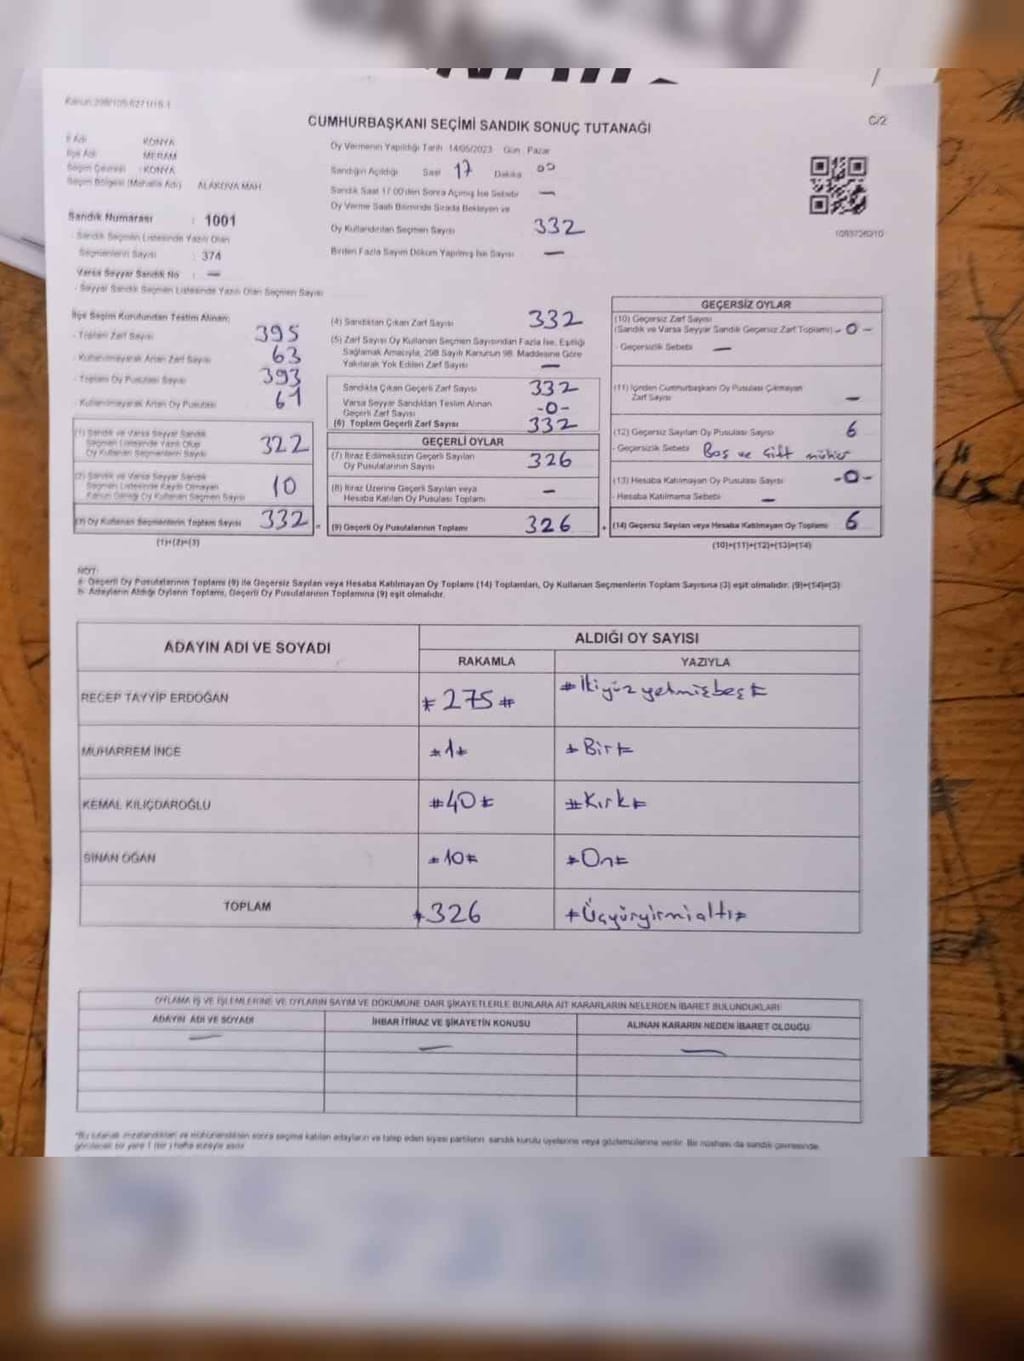 CUMHURBAŞKANI SEÇİMİ SANDIK SONUÇ TUTANAĞI
C/2
İl Adı : KONYA
İlçe Adı : MERAM
Seçim Çevresi : KONYA
Seçim Bölgesi (Mahalle Adı) ALAKOVA MAH.
Sandık Numarası : 1001
- Sandık Seçmen Listesinde Yazılı Olan
Seçmenlerin Sayısı : 374
Varsa Seyyar Sandık No : —
- Seyyar Sandık Seçmen Listesinde Yazılı Olan Seçmen Sayısı
Oy Vermenin Yapıldığı Tarih 14/05/2023 Gün : Pazar
Sandığın Açıldığı Saat 17 Dakika 00
Sandık Saat 17:00'den Sonra Açılmış İse Sebebi —
Oy Verme Saati Bitiminde Sırada Bekleyen ve
Oy Kullandırılan Seçmen Sayısı 332
Birden Fazla Sayım Döküm Yapılmış İse Sayısı —
1093726210
İlçe Seçim Kurulundan Teslim Alınan;
- Toplam Zarf Sayısı 395
- Kullanılmayarak Artan Zarf Sayısı 63
- Toplam Oy Pusulası Sayısı 393
- Kullanılmayarak Artan Oy Pusulası 61
(1) Sandık ve Varsa Seyyar Sandık
Seçmen Listesinde Yazılı Olup
Oy Kullanan Seçmenlerin Sayısı 322
(2) Sandık ve Varsa Seyyar Sandık
Seçmen Listesinde Kaydı Olmayan
Kanun Gereği Oy Kullanan Seçmen Sayısı 10
(3) Oy Kullanan Seçmenlerin Toplam Sayısı 332
(1)+(2)=(3)
(4) Sandıktan Çıkan Zarf Sayısı 332
(5) Zarf Sayısı Oy Kullanan Seçmen Sayısından Fazla İse, Eşitliği
Sağlamak Amacıyla, 298 Sayılı Kanunun 98. Maddesine Göre
Yakılarak Yok Edilen Zarf Sayısı —
Sandıkta Çıkan Geçerli Zarf Sayısı 332
Varsa Seyyar Sandıktan Teslim Alınan
Geçerli Zarf Sayısı -0-
(6) Toplam Geçerli Zarf Sayısı 332
GEÇERLİ OYLAR
(7) İtiraz Edilmeksizin Geçerli Sayılan
Oy Pusulalarının Sayısı 326
(8) İtiraz Üzerine Geçerli Sayılan veya
Hesaba Katılan Oy Pusulası Toplamı —
(9) Geçerli Oy Pusulalarının Toplamı 326
GEÇERSİZ OYLAR
(10) Geçersiz Zarf Sayısı
(Sandık ve Varsa Seyyar Sandık Geçersiz Zarf Toplamı) -0-
- Geçersizlik Sebebi —
(11) İçinden Cumhurbaşkanı Oy Pusulası Çıkmayan
Zarf Sayısı —
(12) Geçersiz Sayılan Oy Pusulası Sayısı 6
- Geçersizlik Sebebi Boş ve Çift mühür
(13) Hesaba Katılmayan Oy Pusulası Sayısı -0-
- Hesaba Katılmama Sebebi —
(14) Geçersiz Sayılan veya Hesaba Katılmayan Oy Toplamı 6
(10)+(11)+(12)+(13)=(14)
NOT:
a- Geçerli Oy Pusulalarının Toplamı (9) ile Geçersiz Sayılan veya Hesaba Katılmayan Oy Toplamı (14) Toplamları, Oy Kullanan Seçmenlerin Toplam Sayısına (3) eşit olmalıdır. (9)+(14)=(3)
b- Adayların Aldığı Oyların Toplamı, Geçerli Oy Pusulalarının Toplamına (9) eşit olmalıdır.
ADAYIN ADI VE SOYADI
ALDIĞI OY SAYISI
RAKAMLA YAZIYLA
RECEP TAYYİP ERDOĞAN #275# #İkiyüzyetmişbeş#
MUHARREM İNCE #1# #Bir#
KEMAL KILIÇDAROĞLU #40# #Kırk#
SİNAN OĞAN #10# #On#
TOPLAM #326 #Üçyüzyirmialtı#
OYLAMA İŞ VE İŞLEMLERİNE VE OYLARIN SAYIM VE DÖKÜMÜNE DAİR ŞİKAYETLERLE BUNLARA AİT KARARLARIN NELERDEN İBARET BULUNDUKLARI
ADAYIN ADI VE SOYADI İHBAR İTİRAZ VE ŞİKAYETİN KONUSU ALINAN KARARIN NEDEN İBARET OLDUĞU
— — —
*Bu tutanak imzalandıktan ve mühürlendikten sonra seçime katılan adayların ve talep eden siyasi partilerin sandık kurulu üyelerine veya gözlemcilerine verilir. Bir nüshası da sandık çevresinde
görülecek bir yere 1 (bir) hafta süreyle asılır.